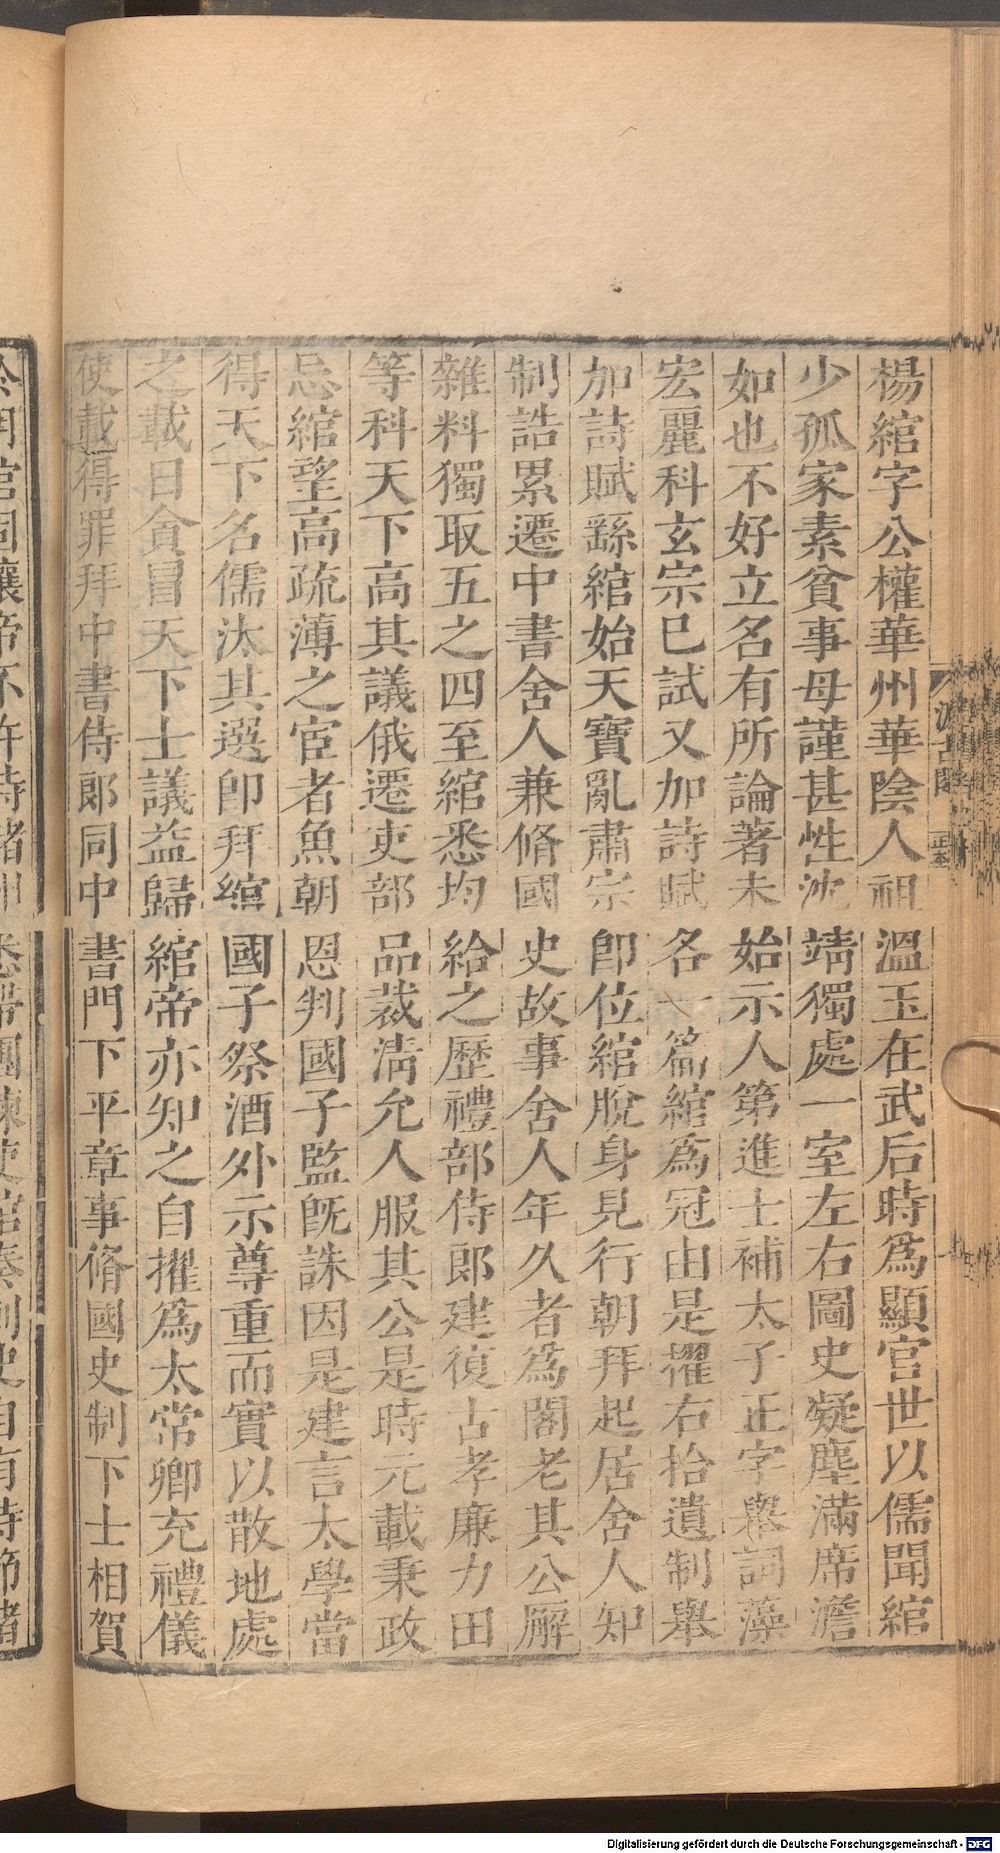 楊綰字公權華州華陰人祖溫玉在武后時爲顯官世以儒聞綰
少孤家素貧事母謹甚性沈靖獨處一室左右圖史凝塵滿席澹
如也不好立名有所論著未始示人第進士補太子正字舉詞藻
宏麗科玄宗已試又加詩賦各一篇綰爲冠由是擢右拾遺制舉
加詩賦繇綰始天寶亂肅宗卽位綰脫身見行朝拜起居舍人知
制誥累遷中書舍人兼脩國史故事舍人年久者爲閣老其公廨
雜料獨取五之四至綰悉均給之歷禮部侍郎建復古孝廉力田
等科天下高其議俄遷吏部品裁淸允人服其公是時元載秉政
忌綰望高疏薄之宦者魚朝恩判國子監旣誅因是建言太學當
得天下名儒汰其選卽拜綰國子祭酒外示尊重而實以散地處
之載日貪冒天下士議益歸綰帝亦知之自擢爲太常卿充禮儀
使載得罪拜中書侍郎同中書門下平章事脩國史制下士相賀
Digitalisierung gefördert durch die Deutsche Forschungsgemeinschaft - DFG